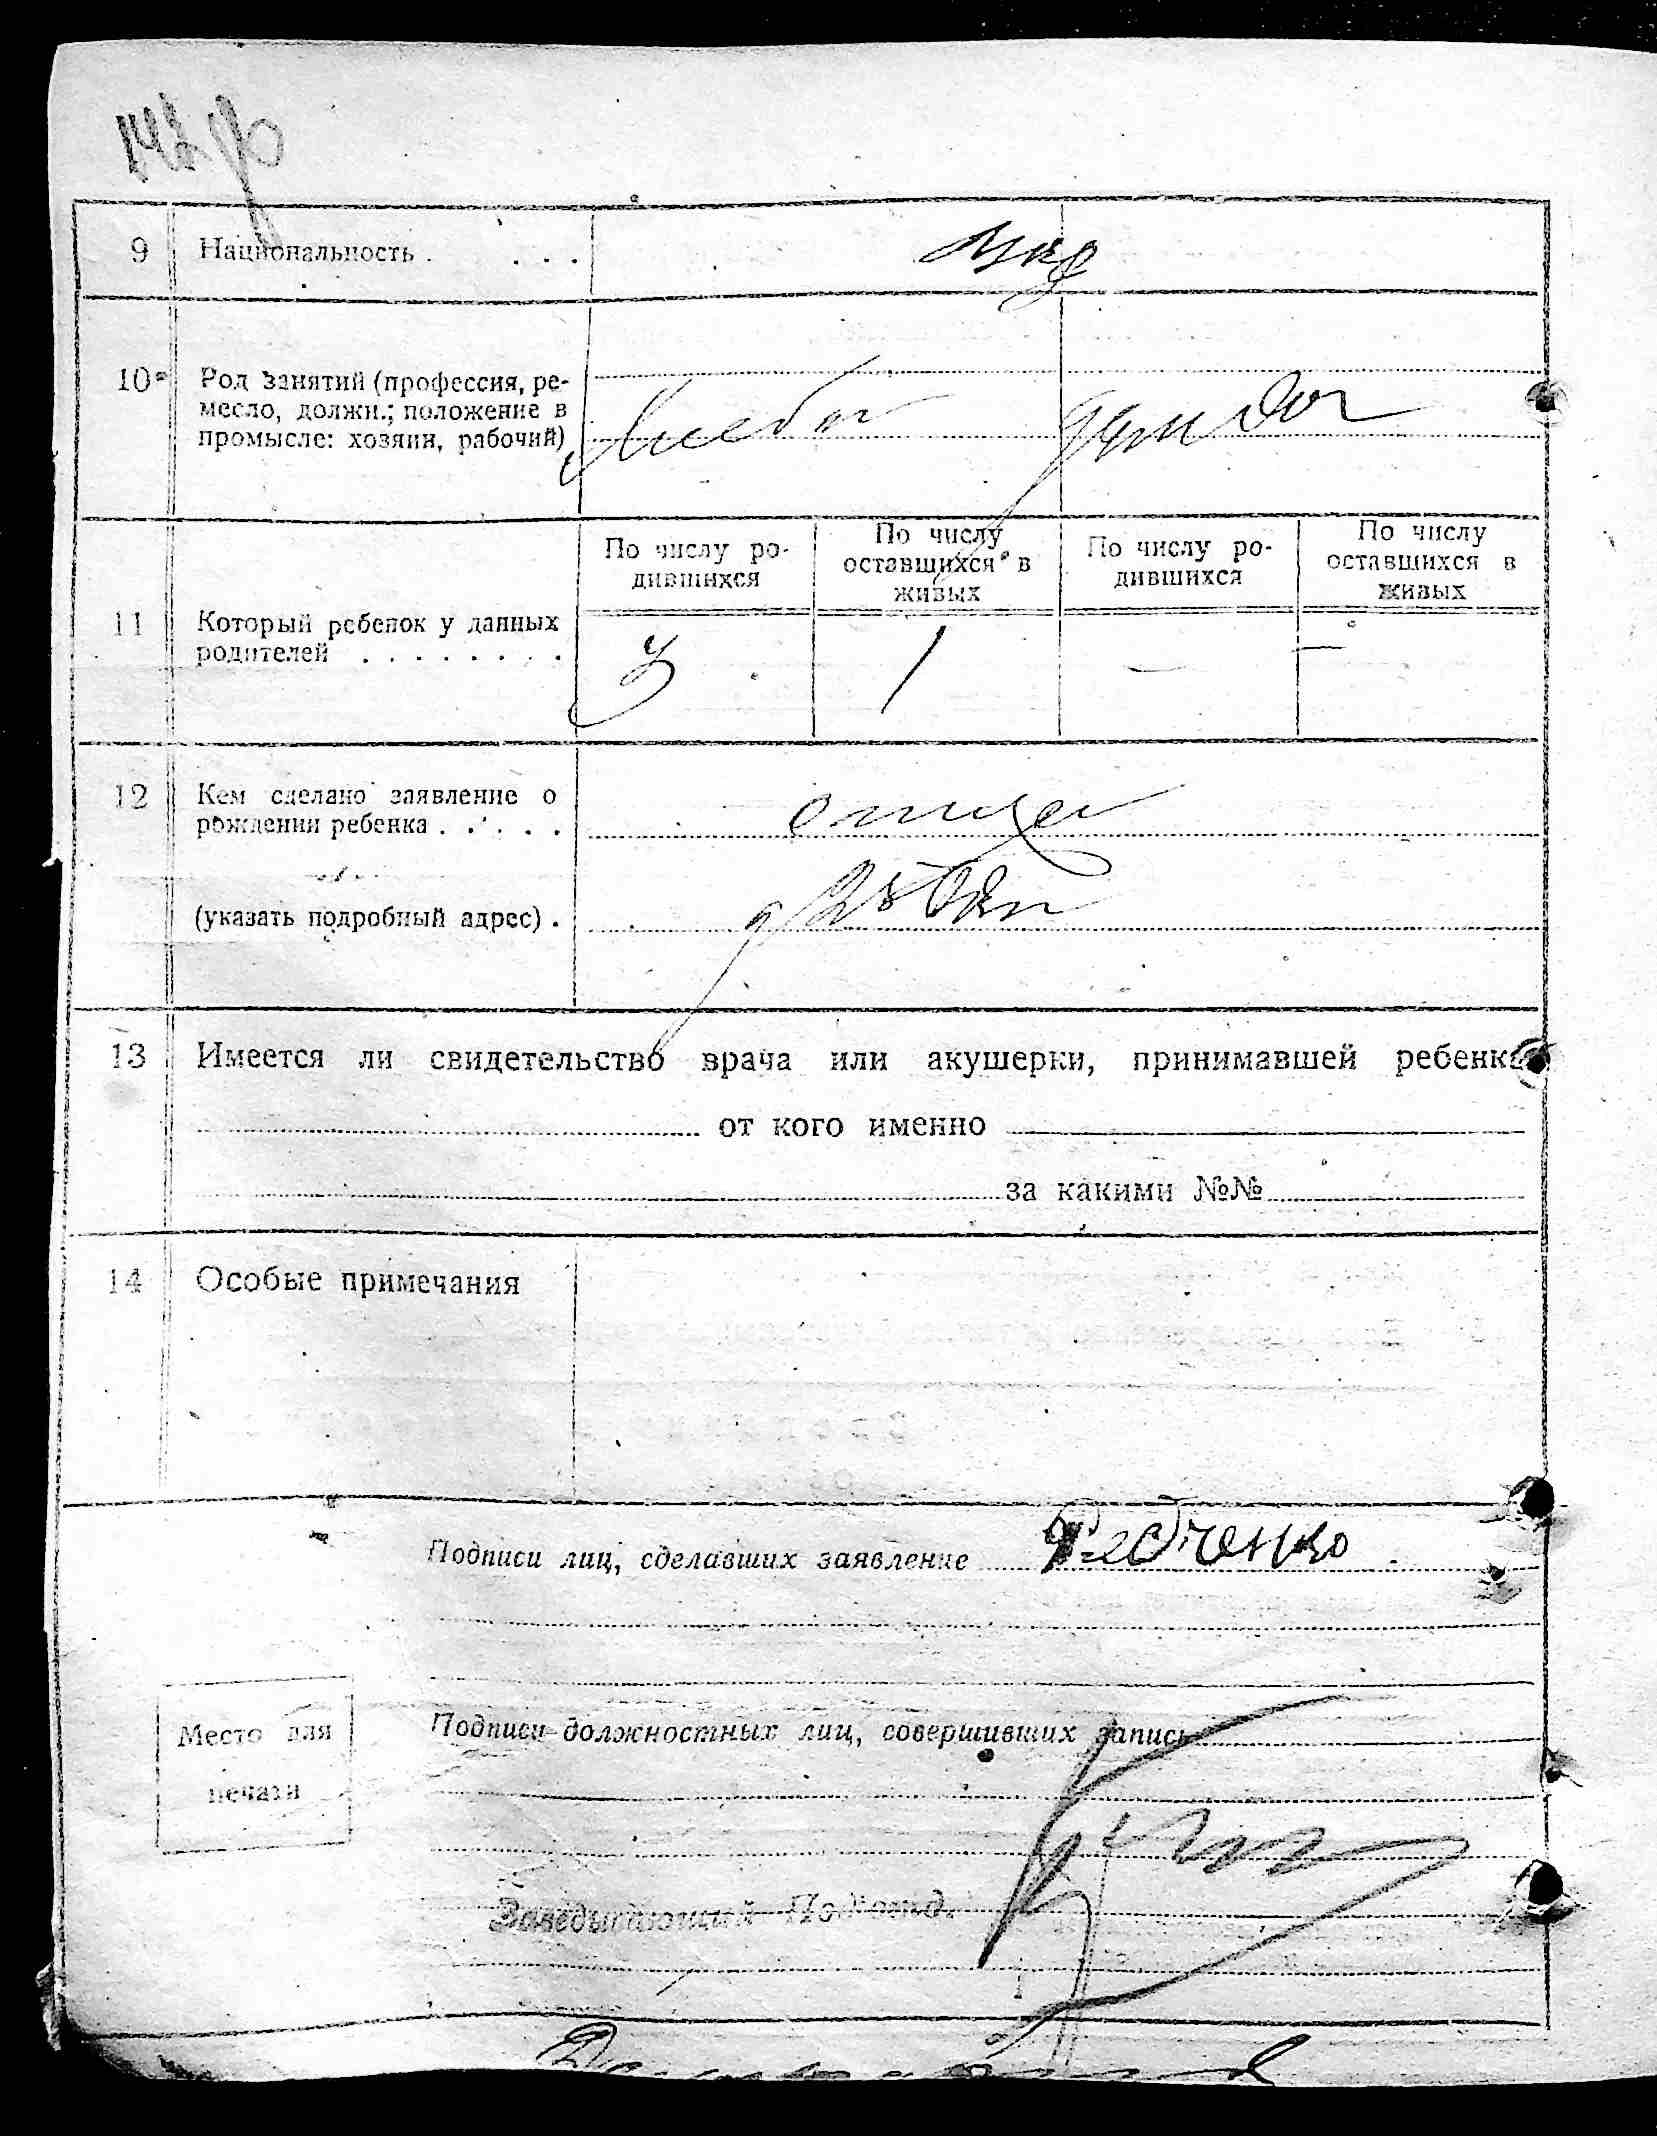 142
9 Национальность . . . . укр
10 Род занятий (профессия, ре-
месло, должн.; положение в
промысле: хозяин, рабочий)
По числу ро-
дившихся
По числу
оставшихся в
живых
По числу ро-
дившихся
По числу
оставшихся в
живых
11 Который ребенок у данных
родителей . . . . . . . . 3 1 — —
12 Кем сделано заявление о
рождении ребенка . . . . . отец
(указать подробный адрес) .
13 Имеется ли свидетельство врача или акушерки, принимавшей ребенка
от кого именно
за какими №№
14 Особые примечания
Подписи лиц, сделавших заявление Федченко
Подписи должностных лиц, совершивших запись
Место для
печати
Заведывающий